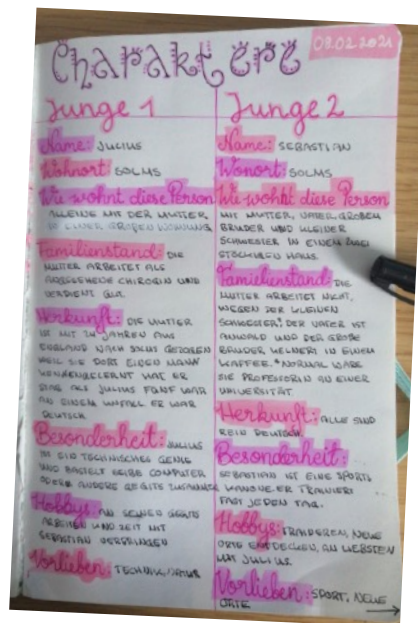 Charaktere
08.02.2021
Junge 1
Name: JULIUS
Wohnort: SOLMS
Wie wohnt diese Person
ALLEINE MIT DER MUTTER,
IN EINER GROẞEN WOHNUNG
Familienstand: DIE
MUTTER ARBEITET ALS
ANGESEHENE CHIROGIN UND
VERDIENT GUT.
Herkunft: DIE MUTTER
IST MIT JAHREN AUS
ENGLAND NACH SOLMS GEZOGEN
WEIL SIE DORT EINEN MANN
KENNENGELERNT HAT ER
STARB ALS JULIUS FÜNF WAR
AN EINEM UNFALL ER WAR
DEUTSCH
Besonderheit: JULIUS
IST EIN TECHNISCHES GENIE
UND BASTELT COMPUTER
ODER ANDERE ZUSAMMEN
Hobbys: AN SEINEN
ARBEITEN UND ZEIT MIT
SEBASTIAN VERBRINGEN
Vorlieben: TECHNIK,
Junge 2
Name: SEBASTIAN
Wonort: SOLMS
Wie wohnt diese Person
MIT MUTTER, VATER, GROẞEM
BRUDER UND KLEINER
SCHWESTER IN EINEM ZWEI
STÖCKIGEN HAUS.
Familienstand: DIE
MUTTER ARBEITET NICHT,
WEGEN DER KLEINEN
SCHWESTER*, DER VATER IST
ANWALD UND DER GROẞE
BRUDER KELNERT IN EINEM
KAFFEE. *NORMAL WÄRE
SIE PROFESSORIN AN EINER
UNIVERSITÄT
Herkunft: ALLE SIND
REIN DEUTSCH.
Besonderheit:
SEBASTIAN IST EINE SPORTS
KANONE. ER TRAINIERT
FAST JEDEN TAG.
Hobbys: TRAINIEREN, NEUE
ORTE ENTDECKEN, AM LIEBSTEN
MIT JULIUS.
Vorlieben: SPORT, NEUE
ORTE